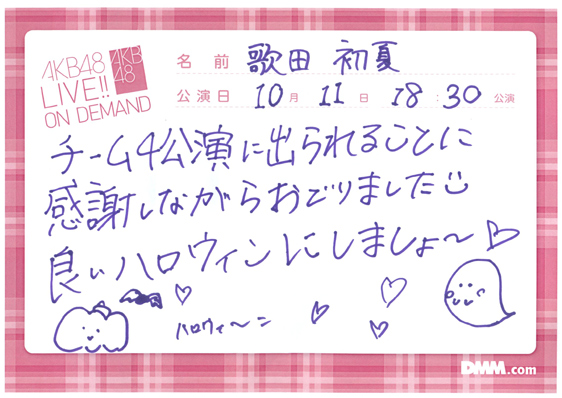 AKB48
LIVE!!
ON DEMAND
AKB
48
名前 歌田 初夏
公演日 10月 11日 18:30 公演
チーム4公演に出られることに
感謝しながらおどりました
良いハロウィンにしましょ〜♡
ハロウィ〜ン
DMM.com